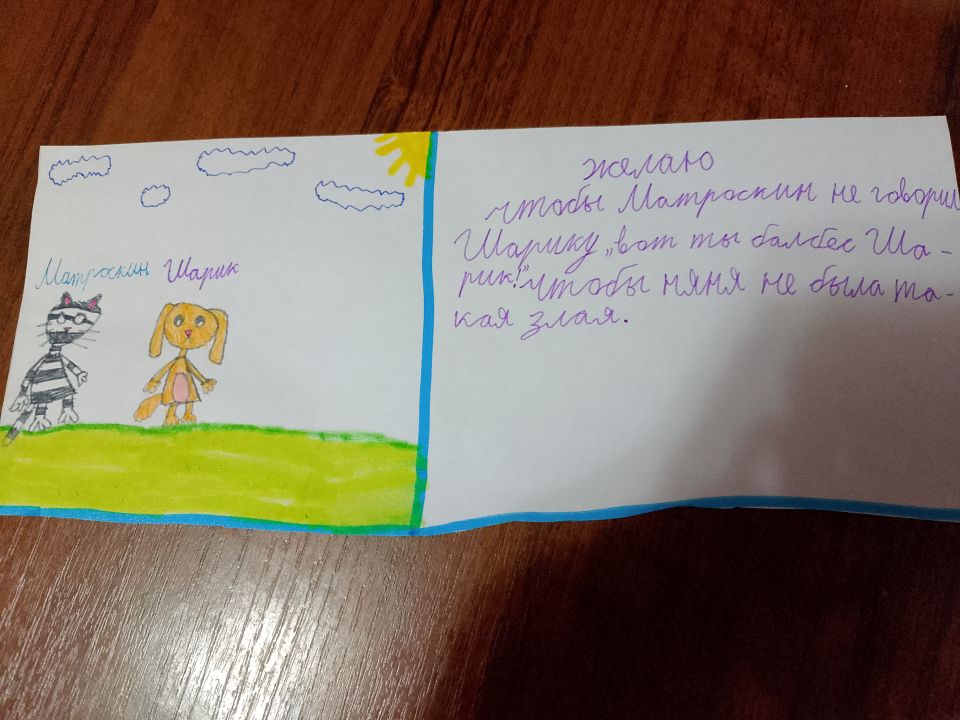 Матроскин Шарик
желаю
чтобы Матроскин не говорил
Шарику „вот ты балбес Ша-
рик!" чтобы няня не была та-
кая злая.